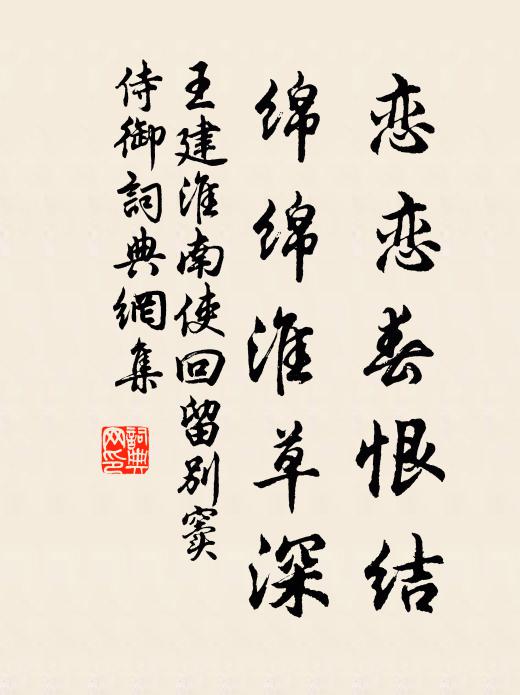 恋恋春恨结
绵绵淮草深
王建淮南使回留别窦
侍御词典网集
詞典网印